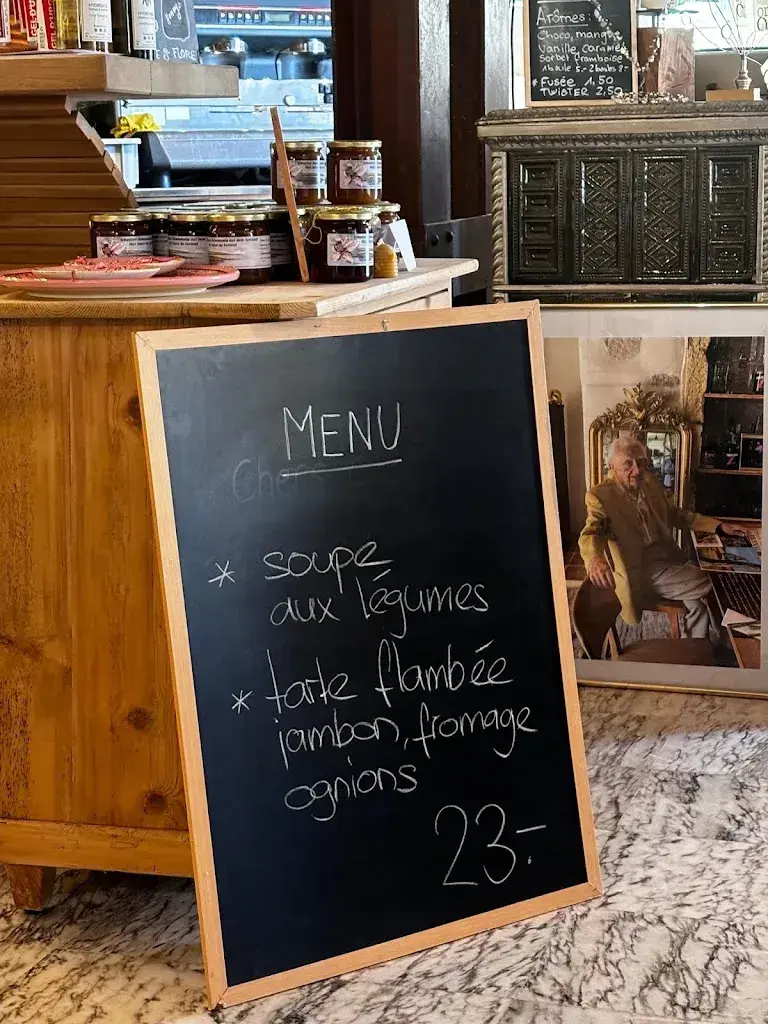 Arômes:
Choco, mangue
Vanille, caramel
Sorbet framboise
1 boule 5.- 2 boules 9.-
* Fusée 1,50
TWISTER 2,50
MENU
Cher
* soupe
aux légumes
* tarte flambée
jambon, fromage
ognions
23.-